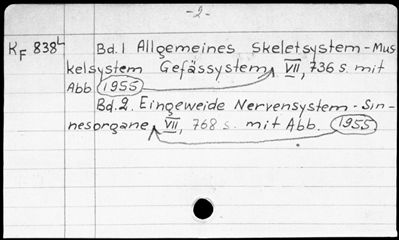 -2-
K_F 838^L Bd.1 Allgemeines Skeletsystem-Mus
kelsystem Gefässystem, VII, 736 s. mit
Abb 1955
Bd.2. Eingeweide Nervensystem-Sin-
nesorgane, VII, 768 s. mit Abb. 1955